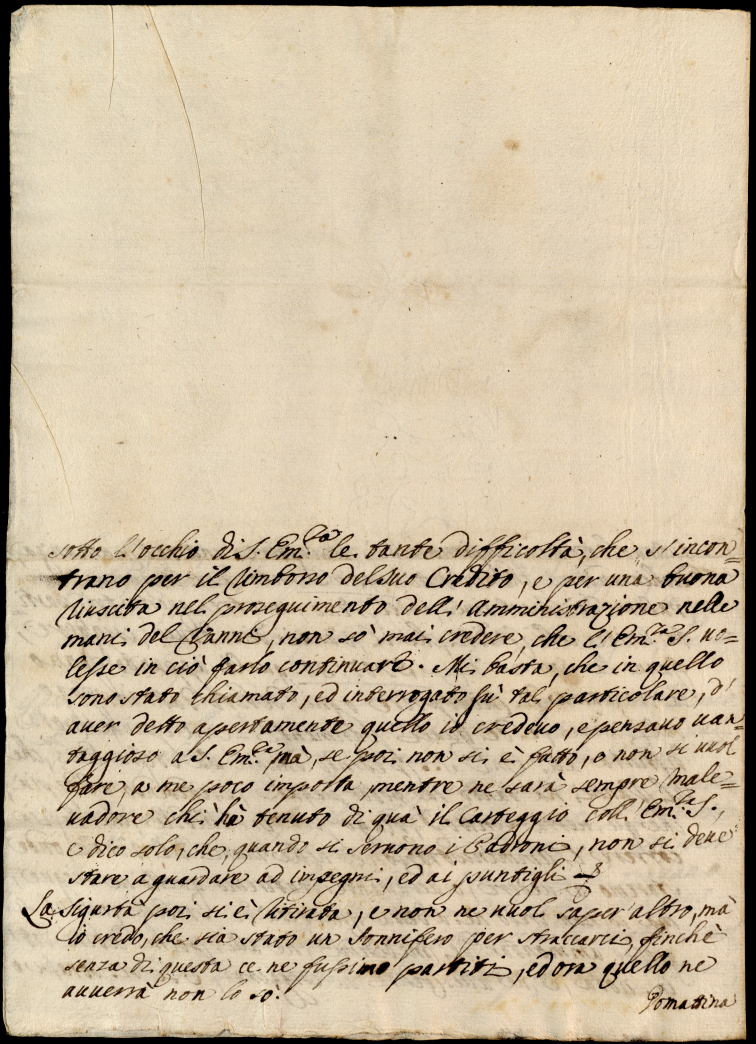 sotto l'occhio di S. Em.za le tante difficoltà, che s'incon=
trano per il rimborso del suo Credito, e per una buona
riuscita nel proseguimento dell'Amministrazione nelle
mani del Nanni, non sò mai credere, che l'Em.za S. uo=
lesse in ciò farlo continuare. Mi basta, che in quello
sono stato chiamato, ed interrogato sù tal particolare, d'
auer detto apertamente quello io credeuo, e pensauo uan=
taggioso a S. Em.za, mà, se poi non si è fatto, o non si uuol
fare, a me poco importa mentre ne sarà sempre male=
uadore chi hà tenuto di quà il Carteggio coll'Em.za S.,
e dico solo, che, quando si seruono i Padroni, non si deue
stare a guardare ad impegni, ed ai puntigli
La sigurtà poi si è ritirata, e non ne uuol saper altro, mà
io credo, che sia stato un sonnifero per straccarci, finchè
senza di questa ce ne fussimo partiti, ed ora quello ne
auuerrà non lo sò.
Domattina